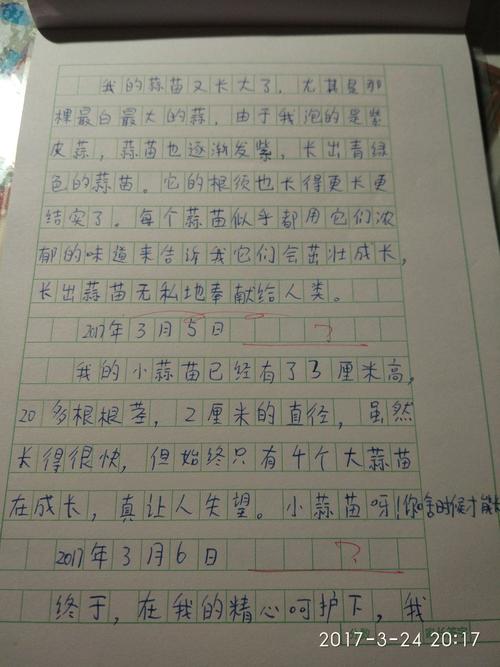 我的蒜苗又长大了，尤其是那
棵最白最大的蒜，由于我泡的是紫
皮蒜，蒜苗也逐渐发紫，长出青绿
色的蒜苗。它的根须也长得更长更
结实了。每个蒜苗似乎都用它们浓
郁的味道来告诉我它们会茁壮成长，
长出蒜苗无私地奉献给人类。
2017年3月5日 ?
我的小蒜苗已经有了3厘米高，
20多根根茎，2厘米的直径，虽然
长得很快，但始终只有4个大蒜苗
在成长，真让人失望。小蒜苗呀！你啥时候才能
2017年3月6日 ?
终于，在我的精心呵护下，我
家长签字
2017-3-24 20:17